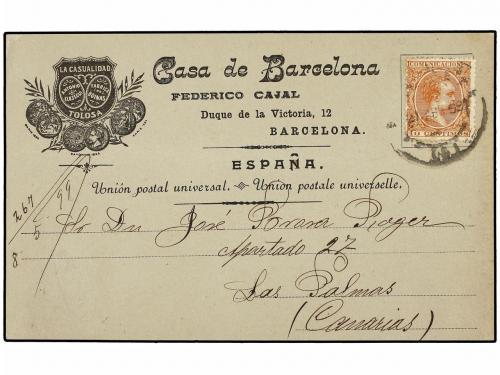 LA CASUALIDAD
TOLOSA
Casa de Barcelona
FEDERICO CAJAL
Duque de la Victoria, 12
BARCELONA.
ESPAÑA.
Unión postal universal. Union postale universelle.
COMUNICACIONES
10 CENTIMOS
267
99
5
8
Sr Dn José Roger
Apartado 27
Las Palmas
(Canarias)